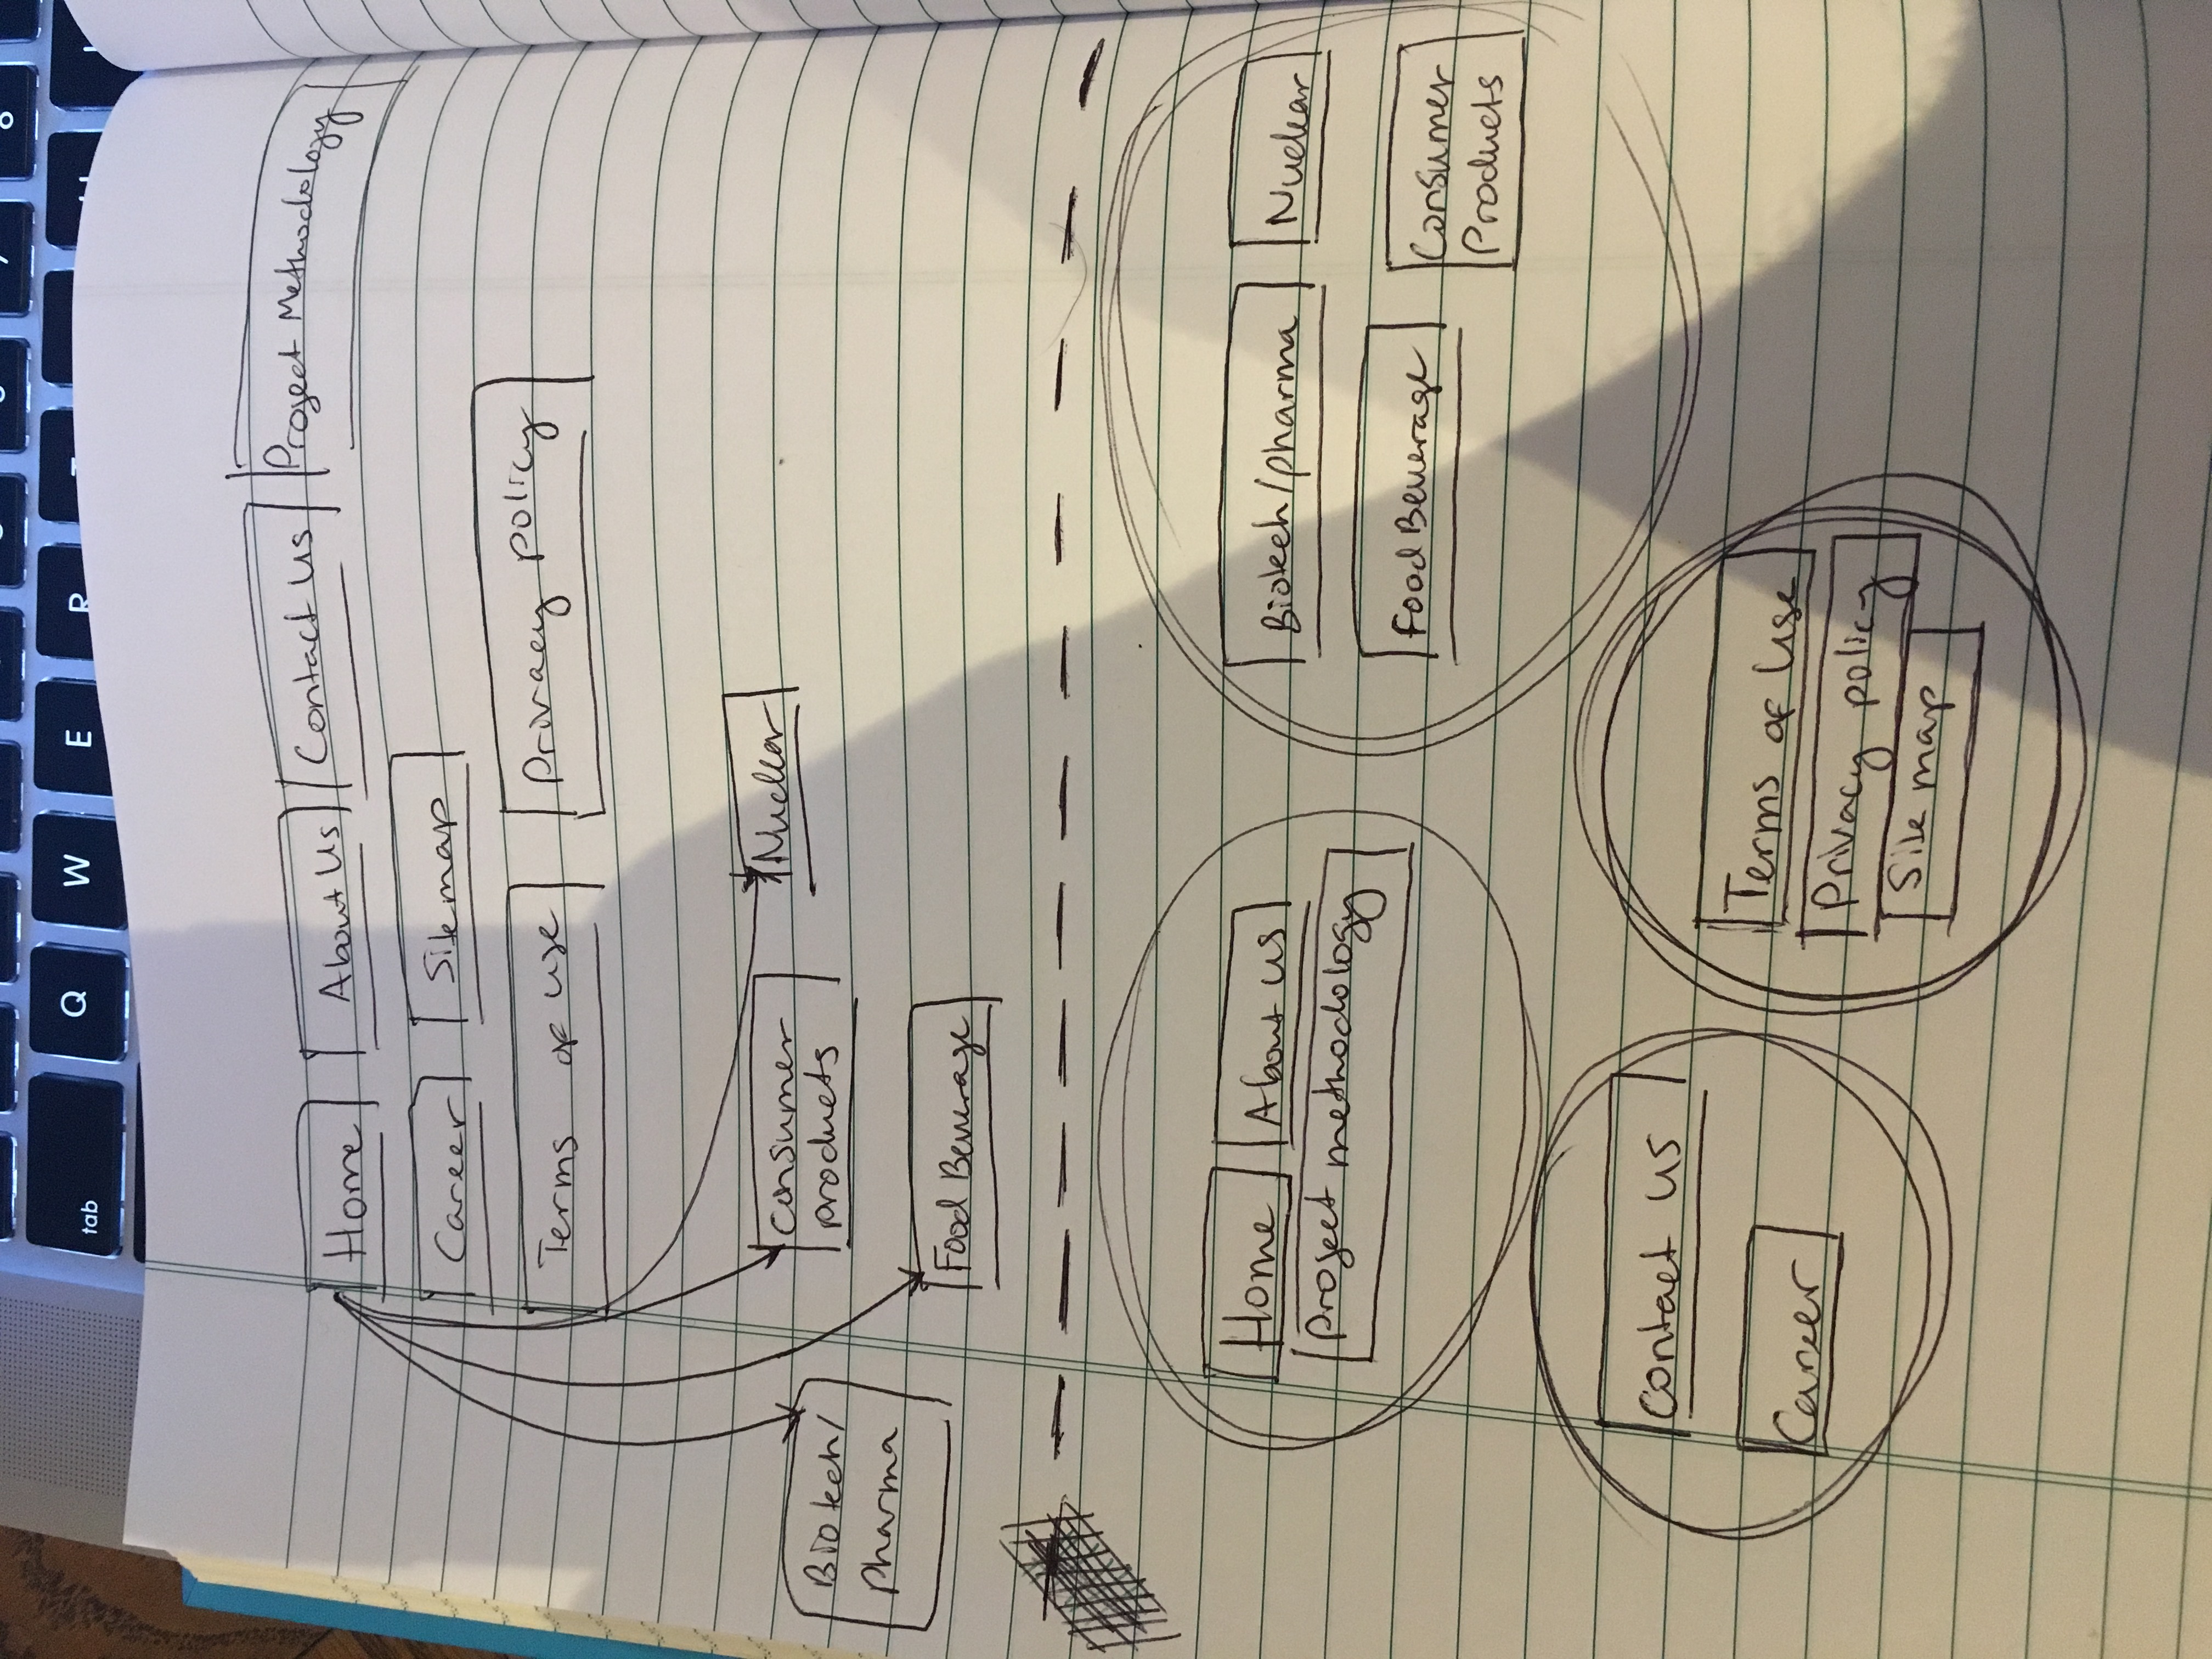 tab Q W E R
Home About Us Contact Us Project Methodology
Career Sitemap
Terms of use Privacy policy
Consumer
products
Nuclear
Biotech/
pharma
Food Beverage
Home About us
Project methodology
Biotech/pharma Nuclear
Food Beverage
Consumer
Products
Contact us
Career
Terms of Use
Privacy policy
Site map